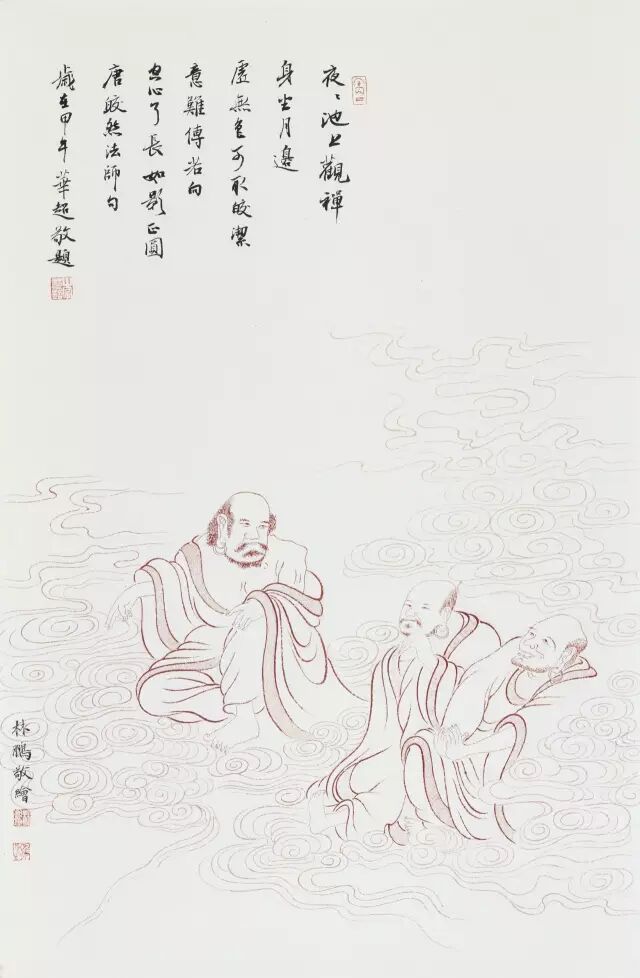 夜〻池上觀禪
身坐月邊
虛無色可取皎潔
意難傳若向
空心了長如影正圓
唐皎然法師句
歲在甲午華超敬題
林鵬敬繪